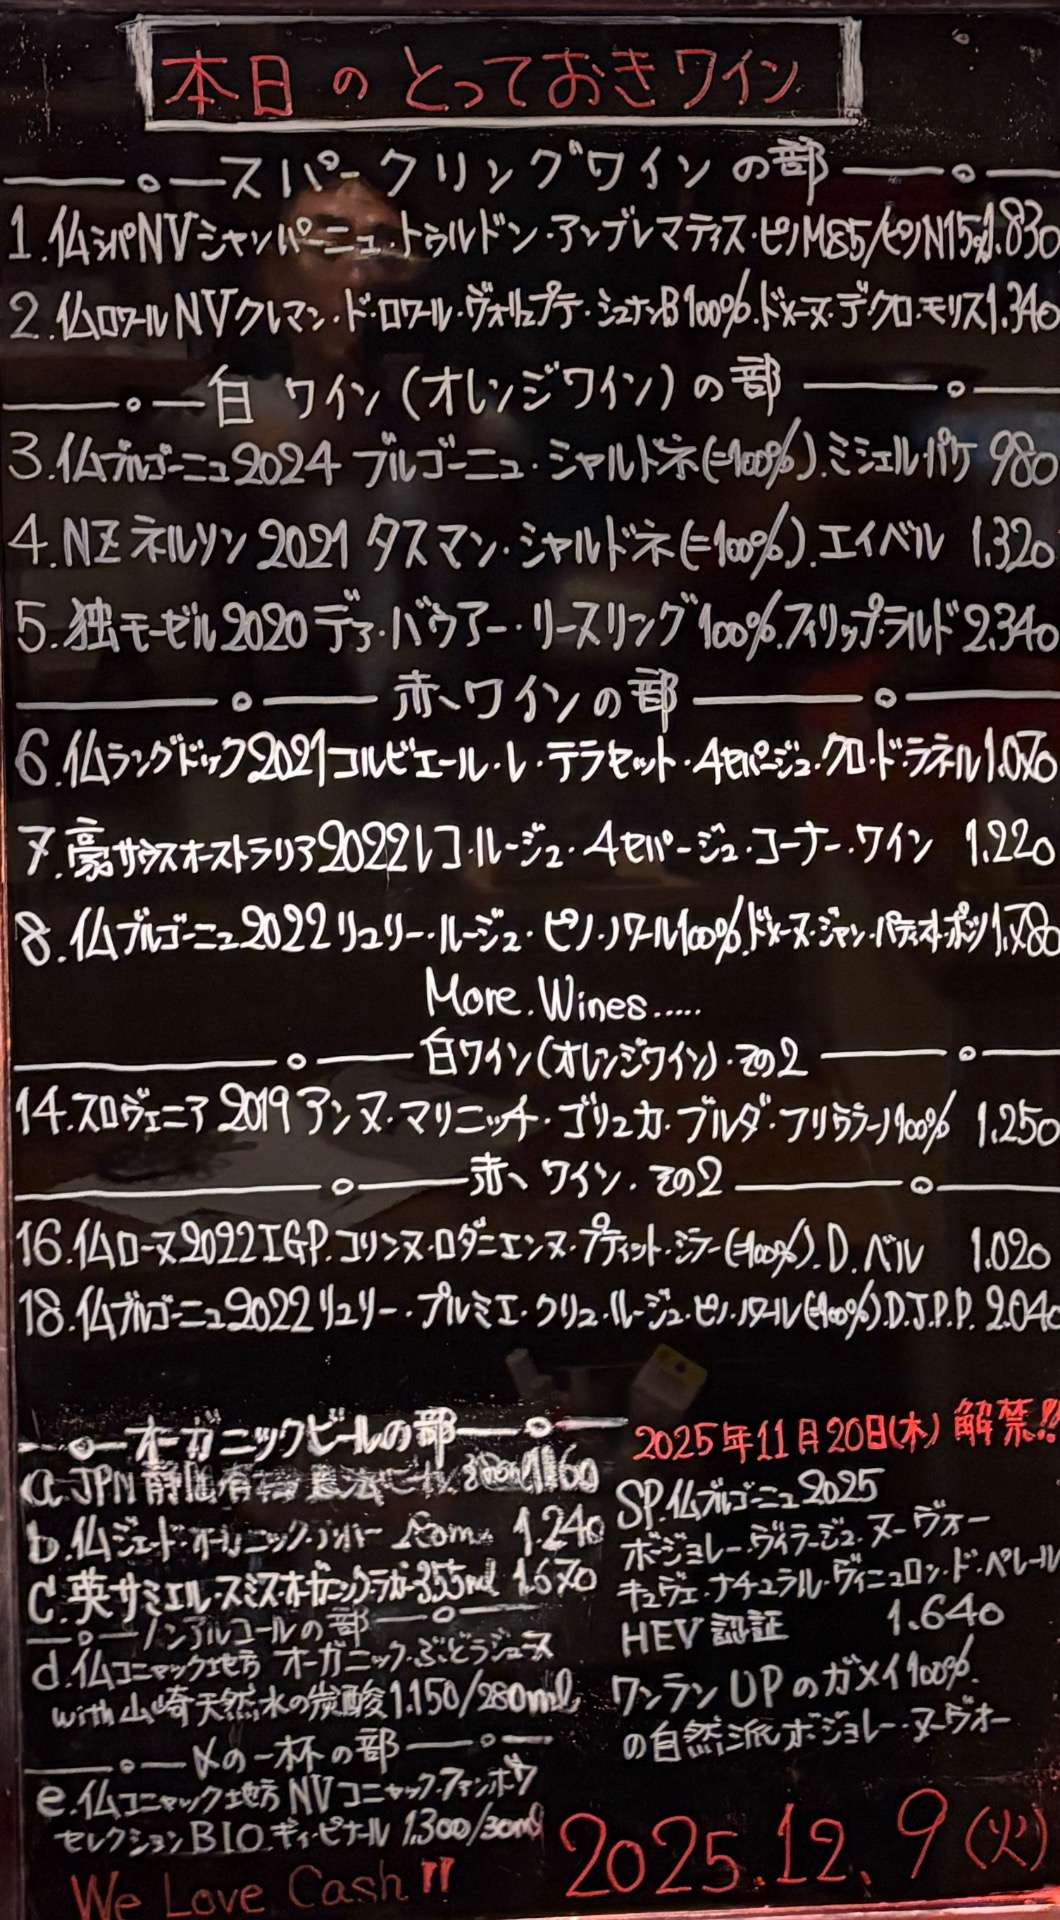 本日のとっておきワイン
スパークリングワインの部
1.仏シパNVシャンパーニュ・トゥルドン・アンブレマティス・ピノM85/ピノN15% 1.830
2.仏ロワールNVクレマン・ド・ロワール・ヴォリュプテ・シュナンB100%.ドメーヌ・デクロ・モリス1.340
白ワイン(オレンジワイン)の部
3.仏ブルゴーニュ2024 ブルゴーニュ・シャルドネ(=100%).ミシェルパケ 980
4.NZネルソン2021 タスマン・シャルドネ(=100%).エイベル 1.320
5.独モーゼル2020デァ・バウアー・リースリング100%.フィリップ・ラルド2.340
赤ワインの部
6.仏ラングドック2021コルビエール・レ・テラセット・4セパージュ・クロ・ド・ラネル1.070
7.豪サウスオーストラリア2022レコ・ルージュ・4セパージュ・コーナー・ワイン 1.220
8.仏ブルゴーニュ2022リュリー・ルージュ・ピノ・ノワール100%.ドメーヌ・ジャン・バティスト・ポンソ1.780
More.Wines.....
白ワイン(オレンジワイン)・その2
14.スロヴェニア2019アンヌ・マリニッチ・ゴリュカ・ブルダ・フリウラーノ100% 1.250
赤ワイン・その2
16.仏ローヌ2022IGP.コリンヌ・ロダニエンヌ・プティット・シラー(=100%).D.ベル 1.020
18.仏ブルゴーニュ2022リュリー・プルミエ・クリュ・ルージュ・ピノ・ノワール(=100%).D.J.P.P. 2.040
オーガニックビールの部
a.JPN静岡有 1160
b.仏ジェード・オーガニック・ 1.240
C.英サミエル・スミス・オーガニック・ラガー355ml 1.670
ノンアルコールの部
d.仏コニャック地方 オーガニック・ぶどうジュース
with山崎天然水の炭酸1.150/280ml
〆の一杯の部
e.仏コニャック地方NVコニャック・ファンボワ
セレクションBIO.ギィ・ピナール 1.300/30ml
We Love Cash!!
2025年11月20日(木)解禁!!
SP.仏ブルゴーニュ2025
ボージョレー・ヴィラージュ・ヌーヴォー
キュヴェ・ナチュラル・ヴィニュロン・ド・ペレール
HEV認証 1.640
ワンランUPのガメイ100%.
の自然派ボジョレー・ヌーヴォー
2025.12.9(火)